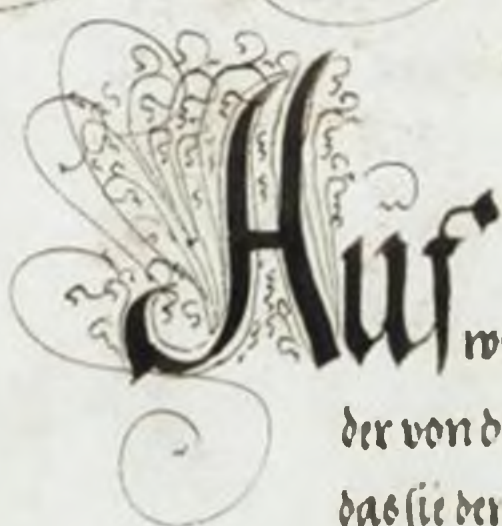 Auf
der von d
das sie der